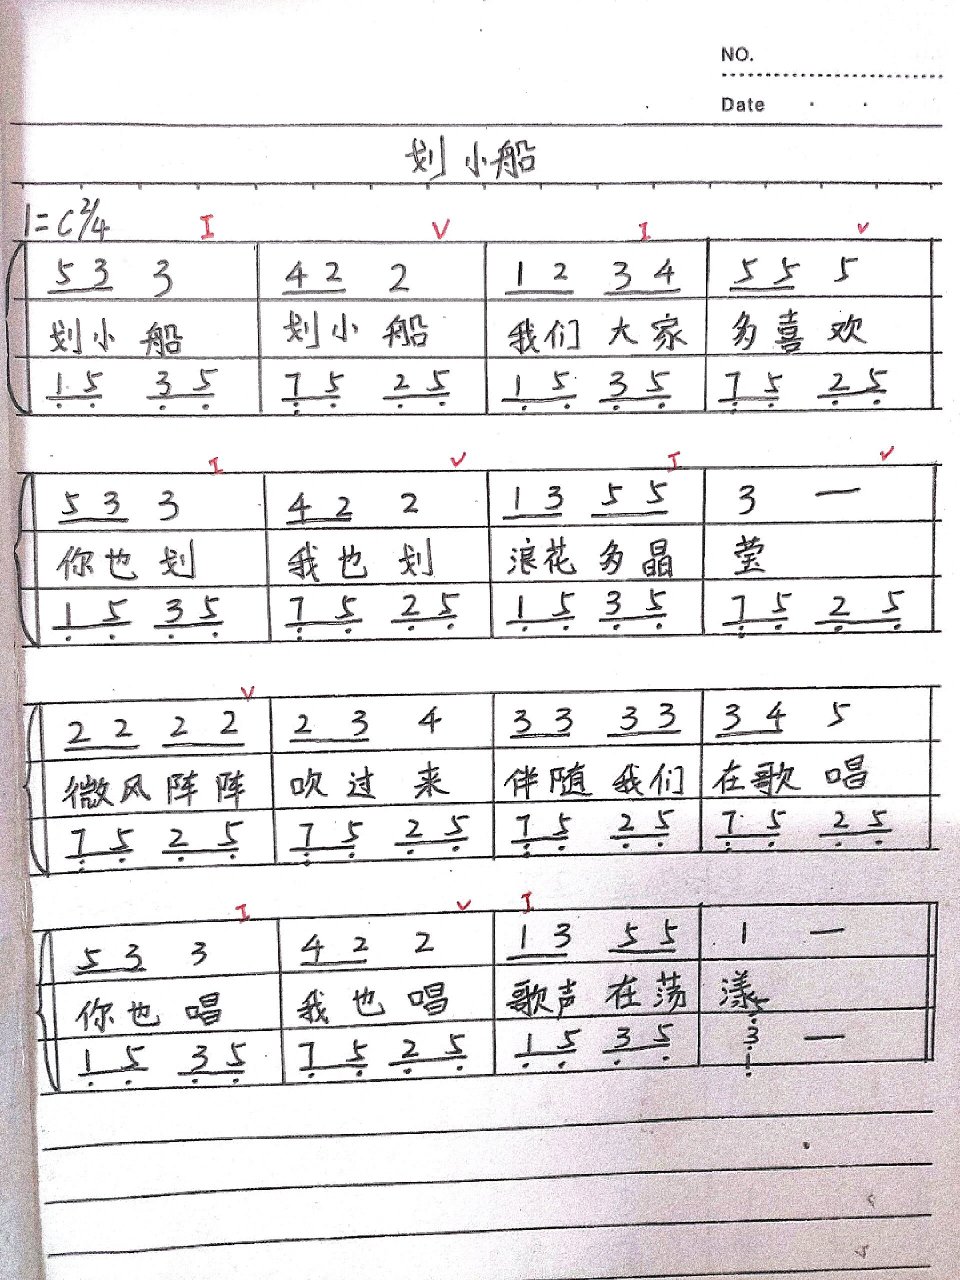 NO.
Date
划小船
1=C 2/4
I V I V
5 3 3 4 2 2 1 2 3 4 5 5 5
划小船 划小船 我们大家 多喜欢
1 5 3 5 7 5 2 5 1 5 3 5 7 5 2 5
I V I V
5 3 3 4 2 2 1 3 5 5 3 —
你也划 我也划 浪花多晶 莹
1 5 3 5 7 5 2 5 1 5 3 5 7 5 2 5
V
2 2 2 2 2 3 4 3 3 3 3 3 4 5
微风阵阵 吹过来 伴随我们 在歌唱
7 5 2 5 7 5 2 5 7 5 2 5 7 5 2 5
I V I
5 3 3 4 2 2 1 3 5 5 1 —
你也唱 我也唱 歌声在荡 漾
1 5 3 5 7 5 2 5 1 5 3 5 5 3 1 —